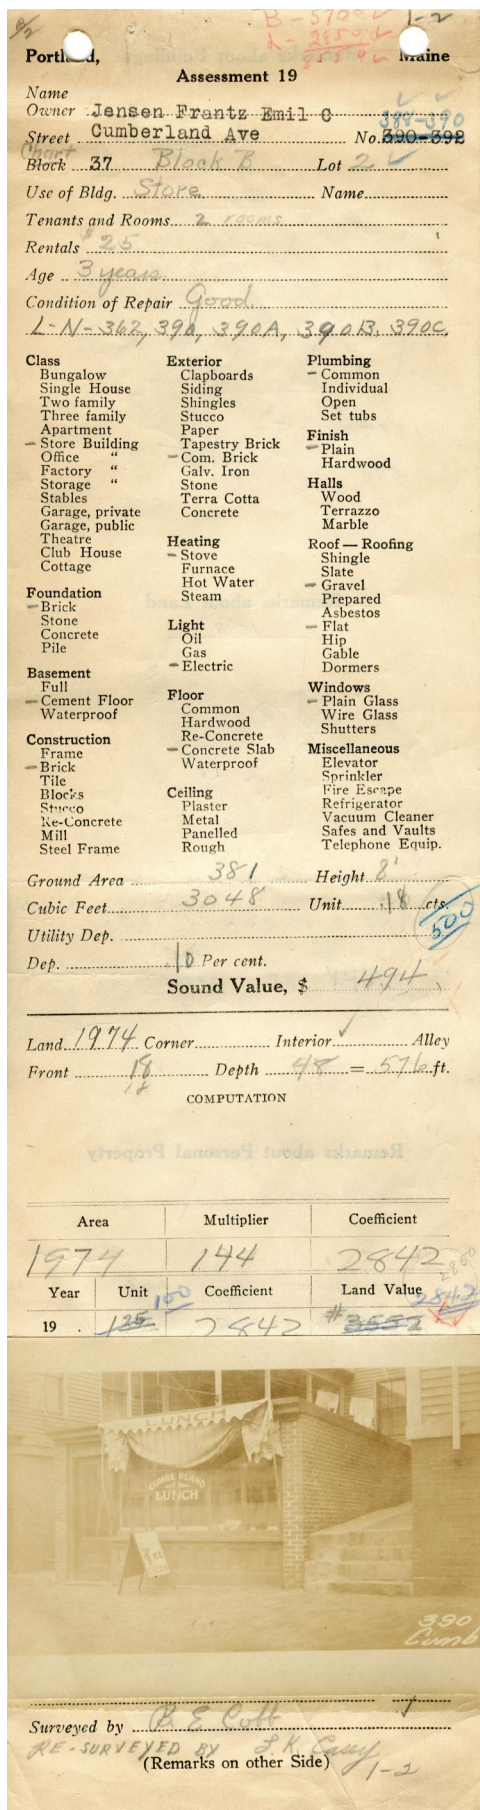 B - 5700 1-2
L - 2850
8550
Portland, Maine
Assessment 19
Name
Owner Jensen Frantz Emil C
388-390
Street Cumberland Ave No. 390-392
Chart
Block 37 Block B Lot 2
Use of Bldg. Store Name
Tenants and Rooms 2 rooms
Rentals $25
Age 3 years
Condition of Repair Good
L-N-362, 390, 390A, 390B, 390C,
Class
Bungalow
Single House
Two family
Three family
Apartment
- Store Building
Office "
Factory "
Storage "
Stables
Garage, private
Garage, public
Theatre
Club House
Cottage
Foundation
- Brick
Stone
Concrete
Pile
Basement
Full
- Cement Floor
Waterproof
Construction
Frame
- Brick
Tile
Blocks
Stucco
Re-Concrete
Mill
Steel Frame
Exterior
Clapboards
Siding
Shingles
Stucco
Paper
Tapestry Brick
- Com. Brick
Galv. Iron
Stone
Terra Cotta
Concrete
Heating
- Stove
Furnace
Hot Water
Steam
Light
Oil
Gas
- Electric
Floor
Common
Hardwood
Re-Concrete
- Concrete Slab
Waterproof
Ceiling
Plaster
Metal
Panelled
Rough
Plumbing
- Common
Individual
Open
Set tubs
Finish
- Plain
Hardwood
Halls
Wood
Terrazzo
Marble
Roof — Roofing
Shingle
Slate
- Gravel
Prepared
Asbestos
- Flat
Hip
Gable
Dormers
Windows
- Plain Glass
Wire Glass
Shutters
Miscellaneous
Elevator
Sprinkler
Fire Escape
Refrigerator
Vacuum Cleaner
Safes and Vaults
Telephone Equip.
Ground Area 381 Height 8'
Cubic Feet 3048 Unit .18 cts.
500
Utility Dep.
Dep. 10 Per cent.
Sound Value, $ 494
Land 1974 Corner Interior ✓ Alley
Front 18 Depth 48 = 576 ft.
18
COMPUTATION
Remarks about Personal Property
Area Multiplier Coefficient
1974 144 2842
2850
Year Unit Coefficient Land Value
100 2842
19 125 2842 #3552
LUNCH
CUMBERLAND
LUNCH
390
Cumb
Surveyed by B E Cobb
RE-SURVEYED BY L. K. Casey
(Remarks on other Side) 1-2